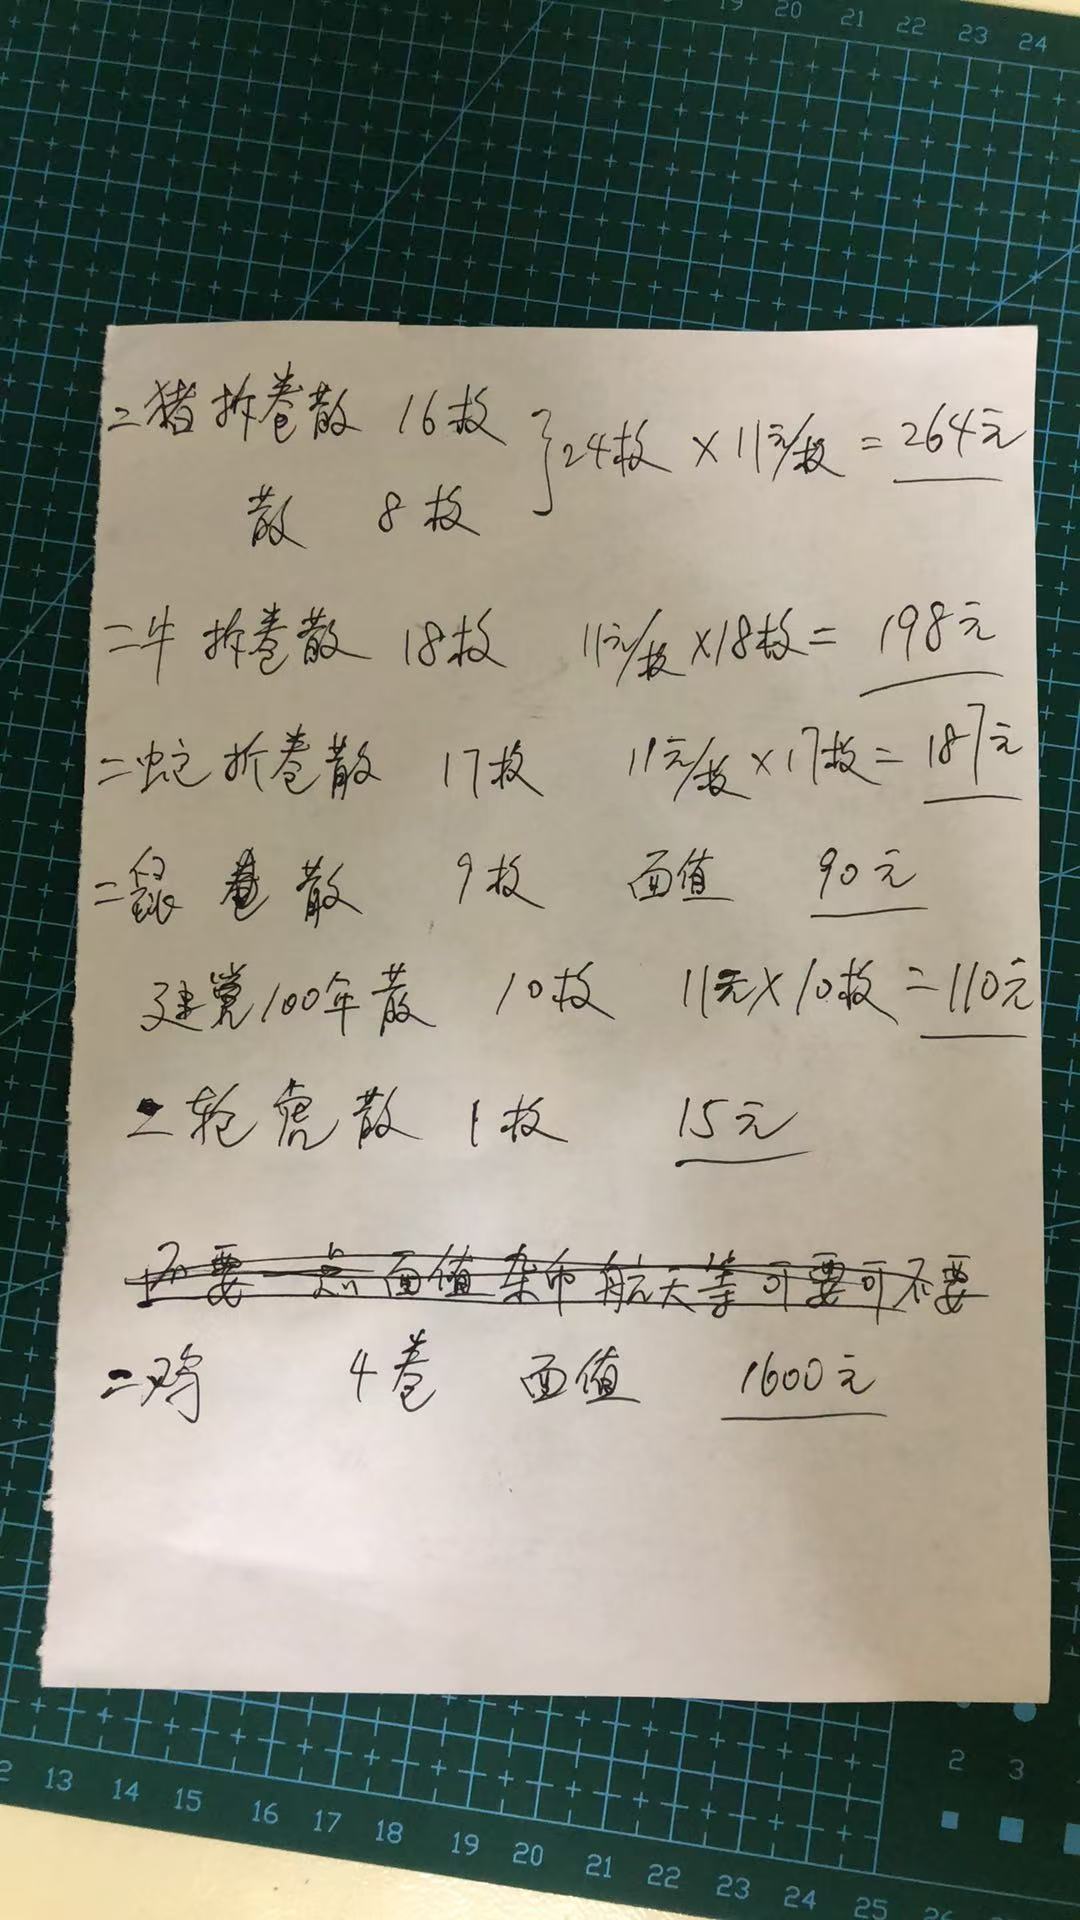 19 20 21 22 23 24
二猪拆卷散 16枚 } 24枚 × 11元/枚 = 264元
散 8枚
二牛拆卷散 18枚 11元/枚×18枚= 198元
二蛇拆卷散 17枚 11元/枚×17枚=187元
二鼠卷散 9枚 面值 90元
建党100年散 10枚 11元×10枚=110元
二轮虎散 1枚 15元
不要一点面值杂币航天等可要可不要
二鸡 4卷 面值 1600元
2 3
2 13 14 15 16 17 18 19 20 21 22 23 24 25 26